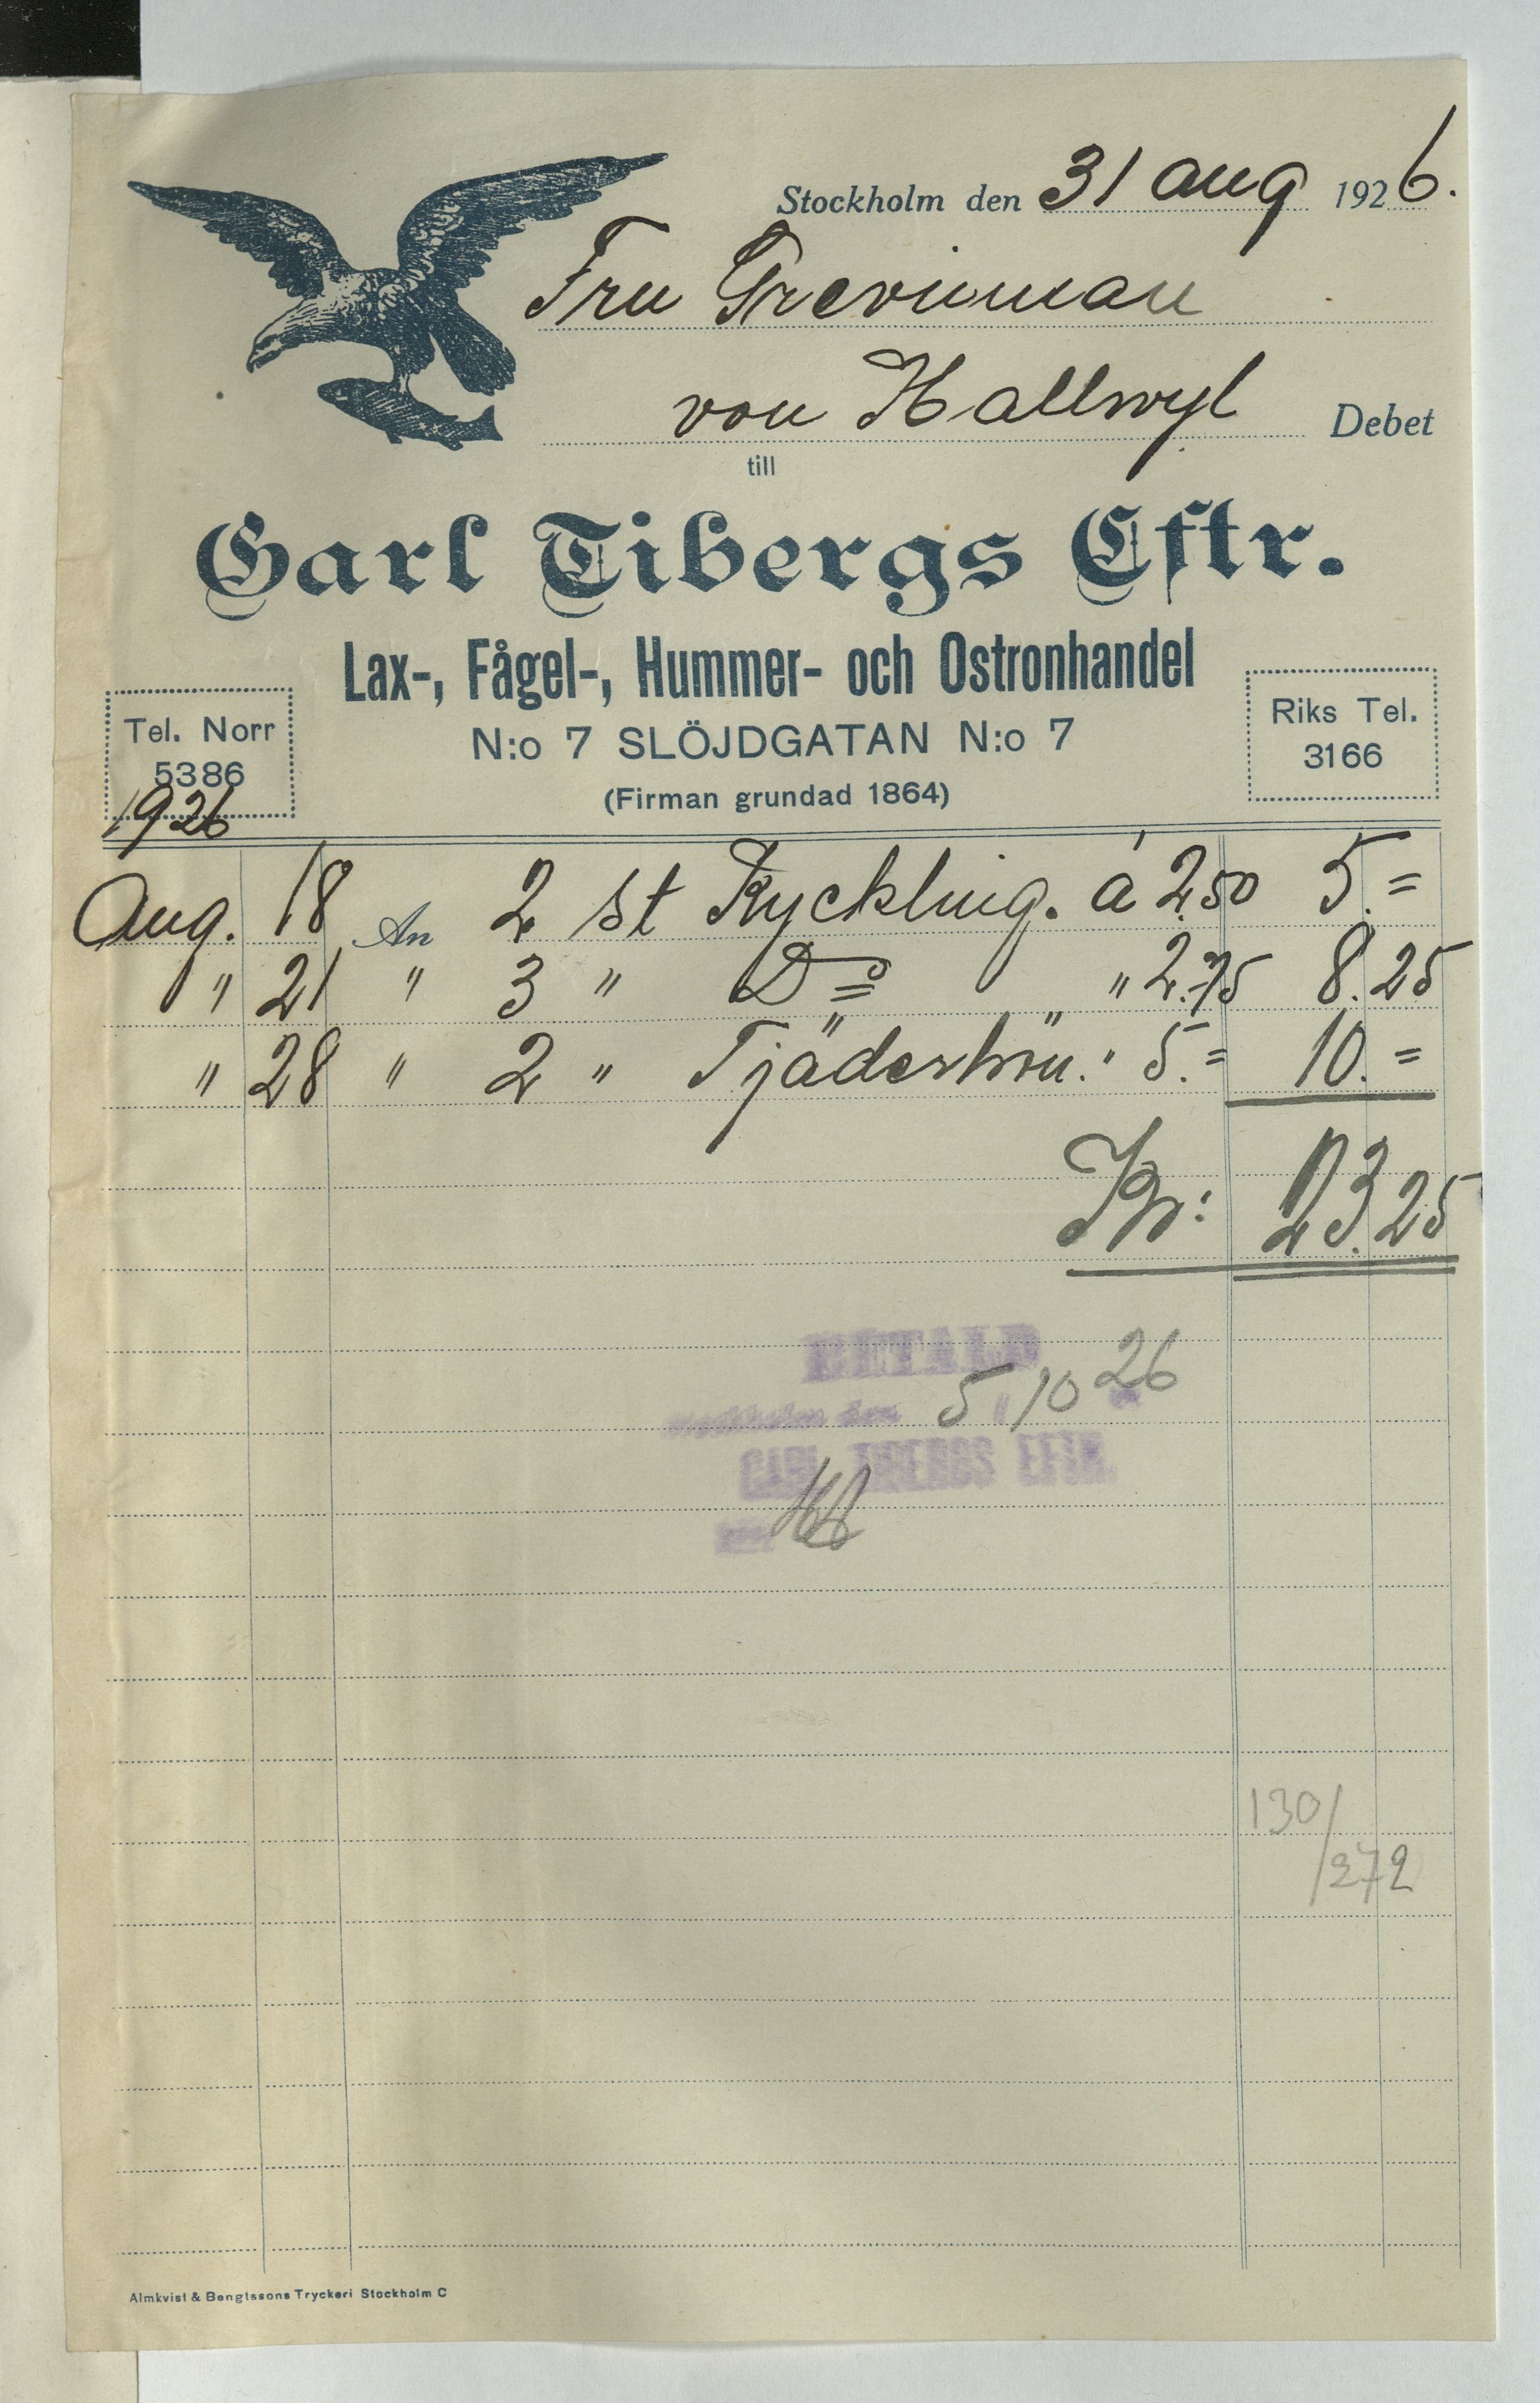 Stockholm den 31 aug 1926.
Fru Grevinnan
von Hallwyl Debet
till
Carl Tibergs Eftr.
Lax-, Fågel-, Hummer- och Ostronhandel
N:o 7 SLÖJDGATAN N:o 7
(Firman grundad 1864)
Tel. Norr
5386
Riks Tel.
3166
1926
Aug. 18 An 2 st Kyckling. á 2.50 5.=
" 21 " 3 " Do " 2.75 8.25
" 28 " 2 " Tjäderhön. " 5.= 10.=
Kr: 23.25
BETALD
Stockholm den 5/10 26
CARL TIBERGS EFTR.
130/272
Almkvist & Bengtssons Tryckeri Stockholm C